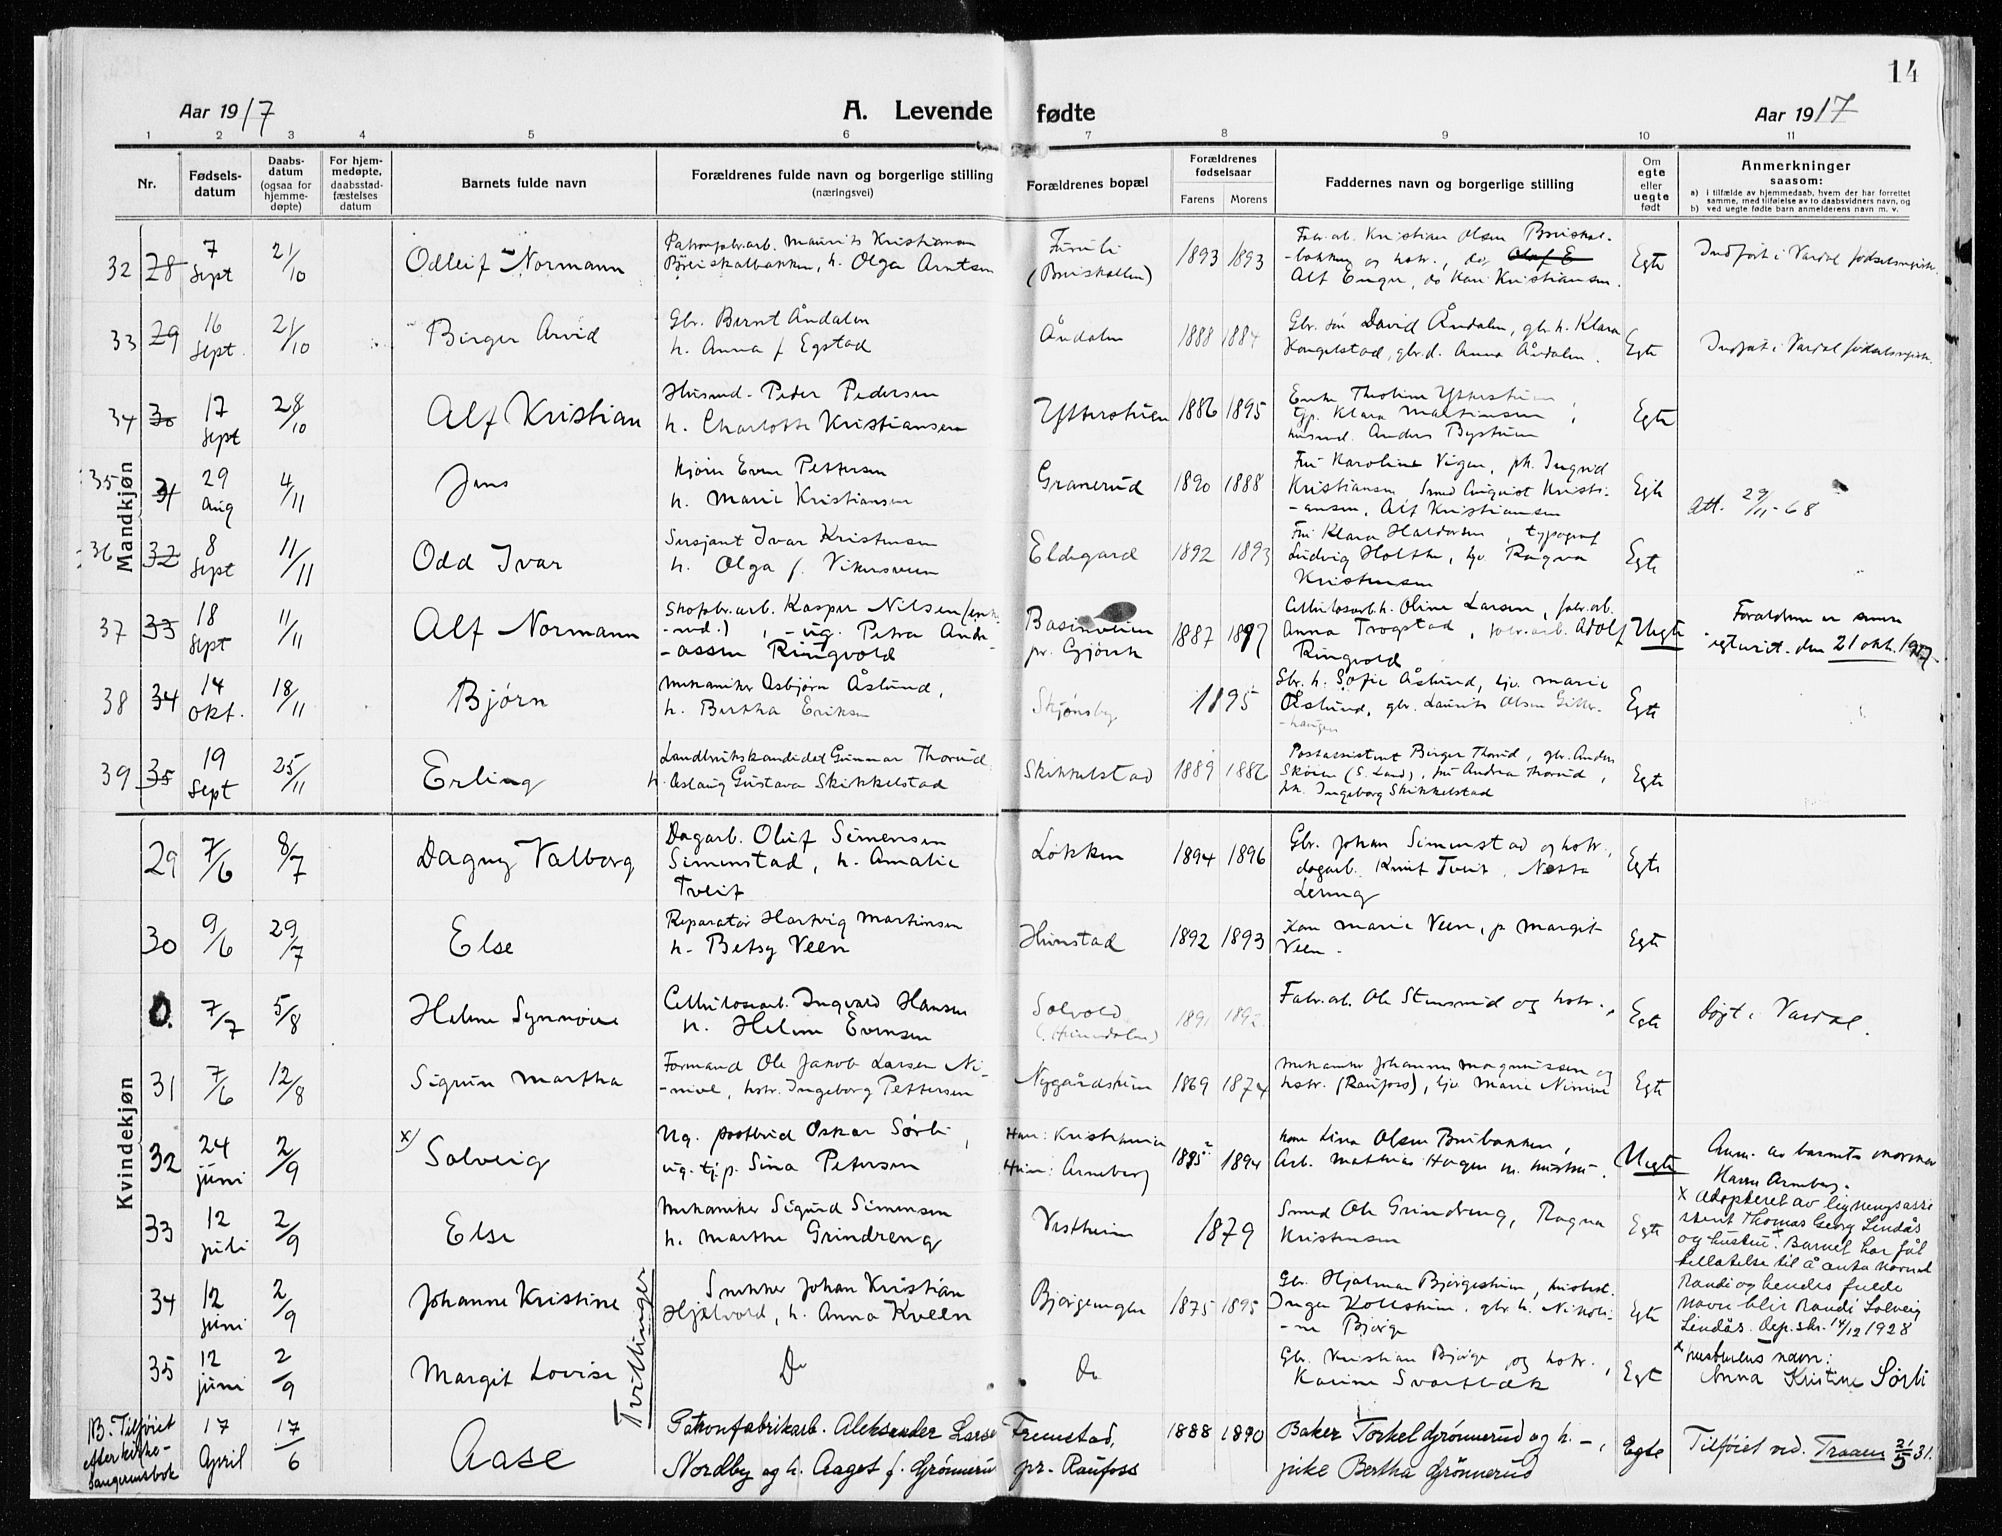 14
Aar 1917
A. Levende fødte
Aar 1917
1 2 3 4 5 6 7 8 9 10 11
Nr.
Fødsels-
datum
Daabs-
datum
(ogsaa for
hjemme-
døpte)
For hjem-
medøpte,
daabsstad-
fæstelses
datum
Barnets fulde navn
Forældrenes fulde navn og borgerlige stilling
(næringsvei)
Forældrenes bopæl
Forældrenes
fødselsaar
Farens Morens
Faddernes navn og borgerlige stilling
Om
egte
eller
uegte
født
Anmerkninger
saasom:
a) i tilfælde av hjemmedaab, hvem der har forrettet
samme, med tilføielse av to daabsvidners navn, og
b) ved uegte fødte barn anmelderens navn m. v.
Mandkjøn
32 28 7 Sept 21/10 Odleif Normann
Patronfabr.arb. Maurits Kristiansen
Bruiskalbakken, h. Olga Arntsen
Furuli
(Bruskallen)
1893 1893
Fabr.arb. Kristian Olsen Bruiskal-
-bakken og hstr., do Olaf E
Alf Enger, do Kari Kristiansen.
Egte
Indført i Vardal fødselsregister.
33 29 16 Sept. 21/10 Birger Arvid
Gbr. Bernt Åndalen
h. Anna f Egstad
Åndalen
1888 1884
Gbr. søn David Åndalen, gbr. h. Klara
Kongelstad, gbr.d. Anna Åndalen.
Egte
Indført i Vardal fødselsregister.
34 30 17 Sept 28/10 Alf Kristian
Husmd. Peder Pedersen
h. Charlotte Kristiansen
Ytterstuen
1886 1895
Enke Theoline Ytterstuen,
tjp. Klara Martinsen,
husmd. Anders Bystuen
Egte
35 31 29 Aug 4/11 Jens
Kjører Even Pettersen
h. Marie Kristiansen
Granerud
1890 1888
Fru Karoline Vigen, pk. Ingrid
Kristiansen, Smed Kristi-
-ansen, Alf Kristiansen
Egte
Att. 29/11-68
36 32 8 Sept 11/11 Odd Ivar
Sersjant Ivar Kristensen
h. Olga f. Vikersveen
Eldegard
1892 1893
Fru Klara Haldorsen, typograf
Ludvig Holthe, tjp. Ragna
Kristensen
Egte
37 33 18 Sept 11/11 Alf Normann
Skofabr.arb. Kaspar Nilsen (enke-
-md.), -ug. Petra Andr-
-assen Ringvold
pr. Gjøvik
1887 1897
Cellulosearb.h. Oline Larsen, fabr.arb.
Anna Trogstad, fabr.arb. Adolf
Ringvold
Uegte
Forældrene er senere
egteviet. den 21 okt. 1917.
38 34 14 Okt. 18/11 Bjørn
Mekaniker Asbjørn Åslund,
h. Bertha Eriksen
Skjønsby
1895
Gbr. h. Sofie Åslund, tjp. Marie
Øslund, gbr. Laurits Olsen Gitter-
-haugen
Egte
39 35 19 Sept 25/11 Erling
Landbrukskandidat Gunnar Thorud
h. Aslaug Gustava Skikkelstad
Skikkelstad
1889 1886
Postassistent Birger Thorud, gbr. Anders
Skøien (S. Land), fru Andrea Thorud,
pk. Ingeborg Skikkelstad
Egte
Kvindekjøn
29 7/6 8/7 Dagny Valborg
Dagarb. Oluf Simensen
Simenstad, h. Amalie
Tveit
Løkken
1894 1896
Gbr. Johan Simenstad og hstr.,
dagarb. Knut Tveit, Netta
Lerung
Egte
30 9/6 29/7 Else
Reparatør Hartvig Martinsen
h. Betsy Veen
Hunstad
1892 1893
Kone Marie Veen, p. Margit
Veen.
Egte
0. 7/7 5/8 Helene Synnøve
Cellulosearb. Ingvald Hansen
h. Helene Evensen
Solvold
(Hunndalen)
1891 1892
Fabr.arb. Ole Stensrud og hstr.,
Egte
Døpt i Vardal.
31 7/6 12/8 Sigrun Martha
Formand Ole Jakob Larsen Ni-
-nive, hstr. Ingeborg Pettersen
Nygårdshiem
1869 1874
Mekaniker Johannes Magnussen og
hstr. (Raufoss), tjp. Marie Ninive
Egte
32 24 juni 2/9 x) Solveig
Ug. postbud Oskar Sørli,
ug. tjp. Sina Petersen
Han: Kristiania
Hun: Arneberg
1895? 1894
Kone Lina Olsen Bribakken,
Arb. Mathias Hagen m. hustru.
Uegte
Anm. av barnets mormor
Karen Arneberg.
x Adopteret av ligningsassi
stent Thomas Georg Lindås
og hustru x. Barnet har fåt
tillatelse til å anta navnet
Randi og hendes fulde
navn blir Randi Solveig
Lindås. Dep. skr. 14/12 1928
x hustruens navn:
Anna Kristine Sørli
33 12 juli 2/9 Else
Mekaniker Sigurd Simensen
h. Marthe Grindreng
Vestheim
1879
Smed Ole Grindreng, Ragna
Kristensen
Egte
34 12 juni 2/9 Johanne Kristine
Tvillinger
Snekker Johan Kristian
Hjelvold, h. Anna Kveen
Bjørgeengen
1875 1895
Gbr. Hjalmar Bjørgestuen,
Inger Kollstuen, gbr. h. Nikoli-
-ne Bjørge
Egte
35 12 juni 2/9 Margit Lovise
Do
Do
Gbr. Kristian Bjørge og hstr.,
Karine Svartbæk
Egte
NB. Tilføiet
efter kirke-
sangerensbok
17 April 17/6 Aase
Patronfabrikarb. Aleksander Larse
Nordby og h. Aagot f. Grønnerud
Fremstad,
pr. Raufoss
1888 1890
Baker Torkel Grønnerud og h. -,
pike Bertha Grønnerud
Egte
Tilføiet ved. Traaen 21/5 31.